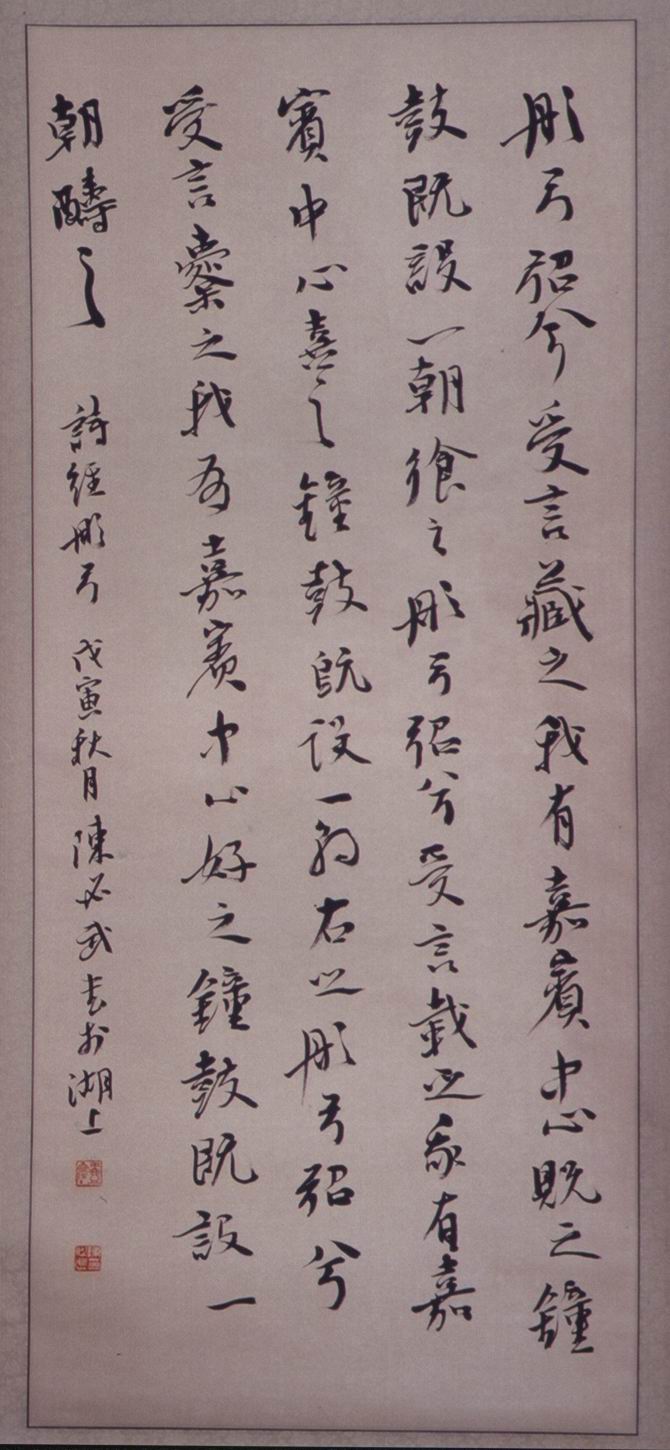 彤弓弨兮受言藏之我有嘉賓中心貺之鐘
鼓既設一朝饗之彤弓弨兮受言載之我有嘉
賓中心喜之鐘鼓既設一朝右之彤弓弨兮
受言櫜之我有嘉賓中心好之鐘鼓既設一
朝醻之 詩經彤弓 戊寅秋月陳必武書於湖上